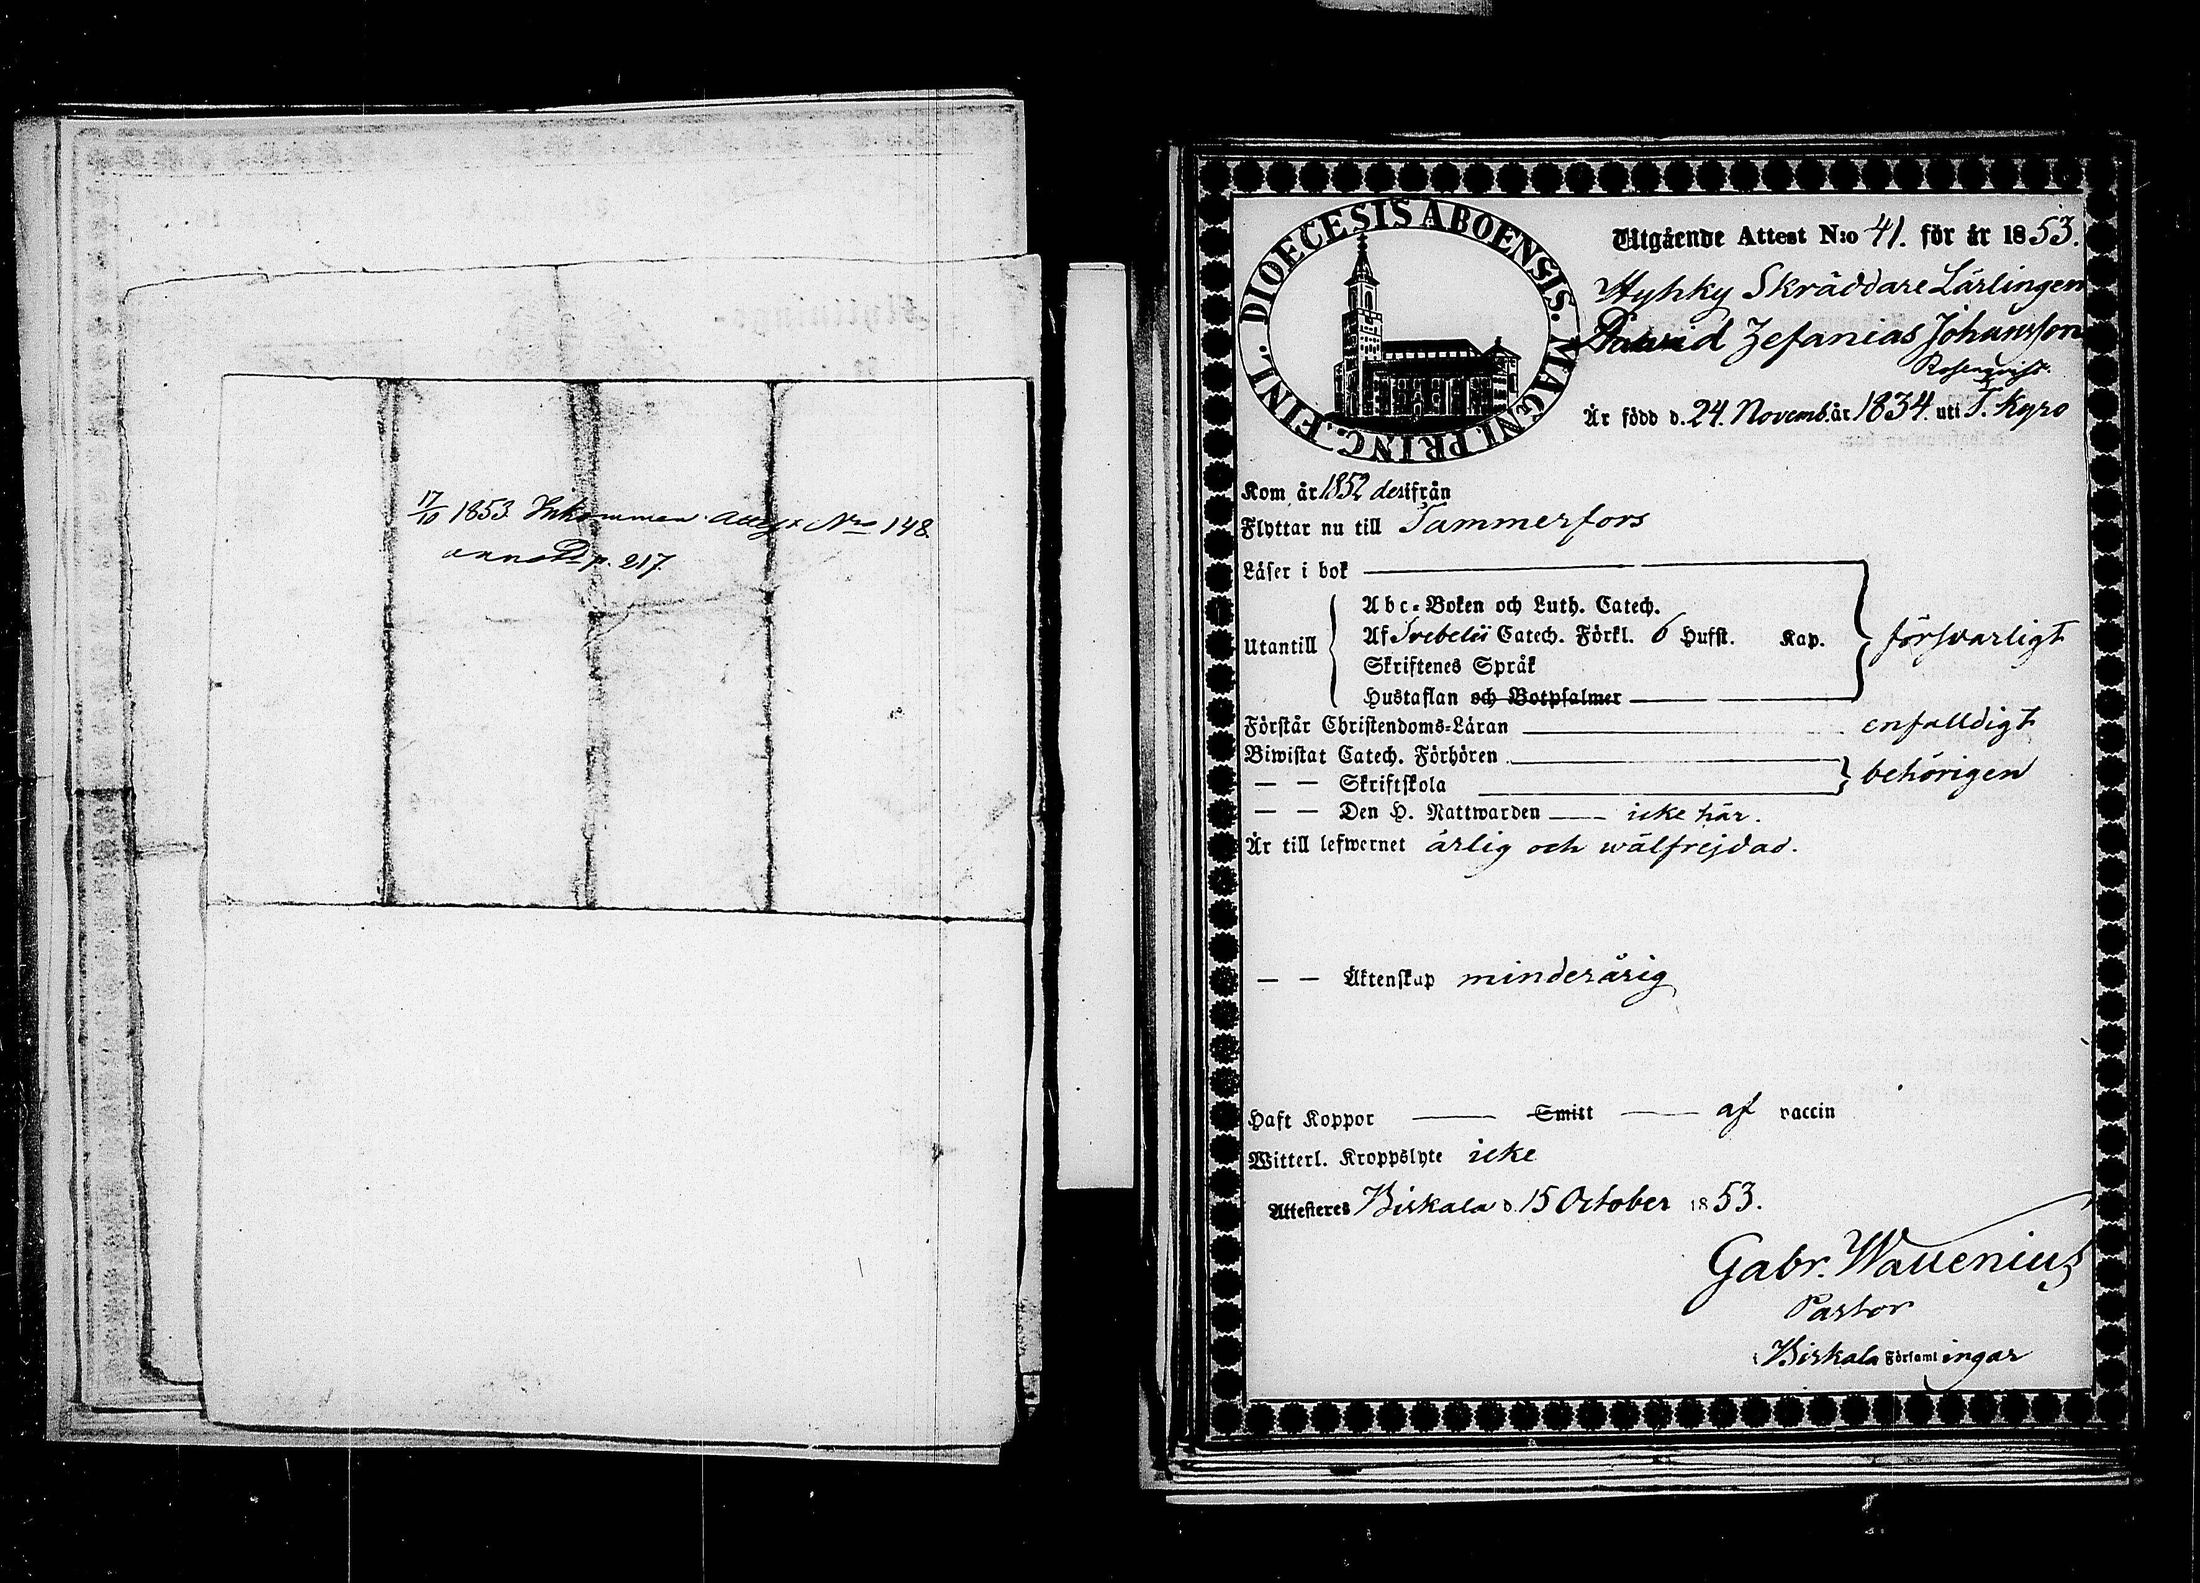 17/10 1853. Inkommen attest No 148.
annot. p. 217.
DIOECESIS ABOENSIS. MAGNI. PRINC. FINL.
Utgående Attest N:o 41. för år 1853.
Hyhky Skräddare Lärlingen
David Zefanias Johansson
Rosenqvist.
Är född d. 24. Novemb. år 1834. uti T. Kyro
Kom år 1852 derifrån
Flyttar nu till Tammerfors
Läser i bok
Abc-Boken och Luth. Catech.
Utantill Af Svebelii Catech. Förkl. 6 Hufst. Kap. försvarligt
Skriftenes Språk
Hustaflan och Botpsalmer
Förstår Christendoms-Läran enfalldigt
Biwistat Catech. Förhören
— — Skriftskola behörigen
— — Den H. Nattwarden — icke här.
Är till lefwernet ärlig och wälfrejdad.
— — Äktenskap minderårig
Haft Koppor — Smitt — af vaccin
Witterl. Kroppslyte icke
Attesteres Birkala d. 15 October 1853.
Gabr. Wallenius
Pastor
i Birkala Församlingar